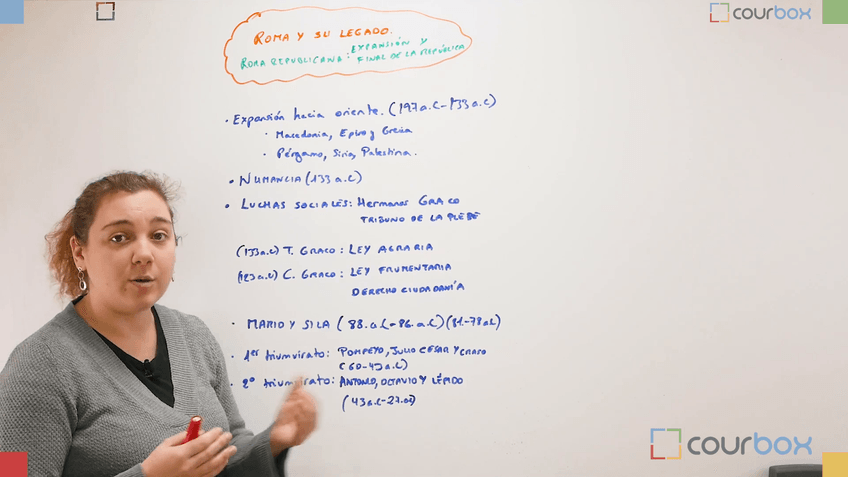 courbox
ROMA Y SU LEGADO.
ROMA REPUBLICANA: EXPANSIÓN Y
FINAL DE LA REPÚBLICA
• Expansión hacia oriente. (197a.C-133a.C)
• Macedonia, Epiro y Grecia
• Pérgamo, Siria, Palestina.
• NUMANCIA (133 a.C)
• LUCHAS SOCIALES: Hermanos GRACO
TRIBUNO DE LA PLEBE
(133a.C) T. GRACO: LEY AGRARIA
(123a.C) C. GRACO: LEY FRUMENTARIA
DERECHO CIUDADANÍA
• MARIO Y SILA (88.a.C-86.a.C)(81-78a.C)
• 1er triumvirato: POMPEYO, JULIO CESAR Y CRASO
(60-49a.C)
• 2º triumvirato: ANTONIO, OCTAVIO Y LÉPIDO
(43a.C-27.aC)
courbox